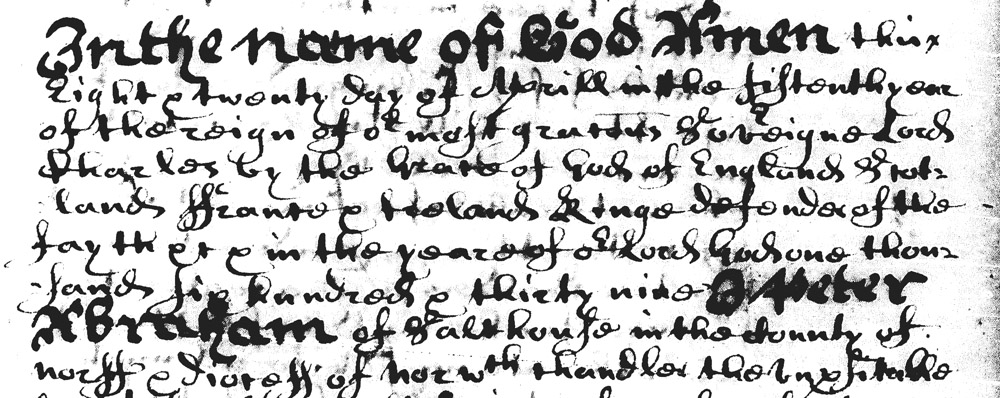 In the name of God Amen this
Eight & twenty day of Aprill in the fiftenth year
of the reign of or most gratius Soveigne Lord
Charles by the Grace of God of England Scot-
land ffrance & Ireland Kinge defender of the
fayth &c & in the yeare of or Lord God one thou-
sand six hundred & thirty nine I Peter
Abraham of Salthouse in the County of
norff & dioces of norwth chandler the